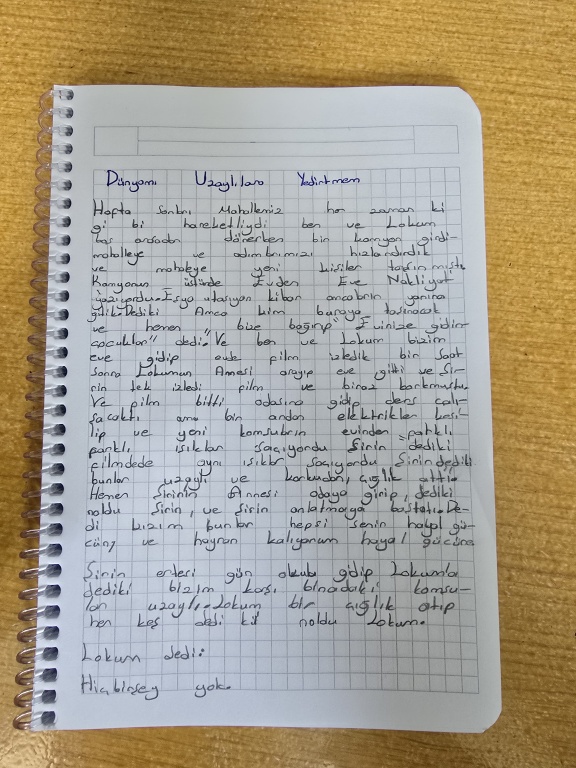 Dünyamı Uzaylılara Yedirtmem
Hafta sonları Mahallemiz her zaman ki
gi bi hareketliydi ben ve Lokum
baş arasadan dönerken bin kamyon girdi-
mahalleye ve adımlarımızı hızlandırdık
ve mahaleye yeni kişiler taşınmıştı
Kamyonun üstünde Evden Eve Nakliyat
yazıyordu. Eşya utasıyan kibar amcaların yanına
gitik. Dediki Amca kim buraya taşınacak
ve hemen "bize bağırıp" Evinize gidin
çocuklar" dedi. Ve ben ve Lokum bizim
eve gidip evde film izledik bin saat
sonra Lokumun Annesi arayıp eve gitti ve Şi-
rin tek izledi film ve biraz korkmuştu.
Ve film bitti odasına gidip ders çalı-
şacaktı ama bin andan elektrikler kesi-
lip ve yeni komşuların evinden farklı
farklı ışıklar saçıyordu Şirin dediki
filmdede aynı ışıklar saçıyordu Şirin dediki
bunlar uzaylı ve korkudan çığlık attı.
Hemen Şirinin Annesi odaya girip, dediki
noldu Şirin, ve Şirin anlatmaya başlatı. De-
di kızım bunlar hepsi senin hayal gü-
cünç ve hayran kalıyorum hayal gücüne
Şirin ertesi gün okula gidip Lokum'a
dediki bizim karşı binadaki komşu-
lar uzaylı. Lokum bir çığlık atıp
her keş dedi ki noldu Lokum.
Lokum dedi:
Hiçbirşey yok.